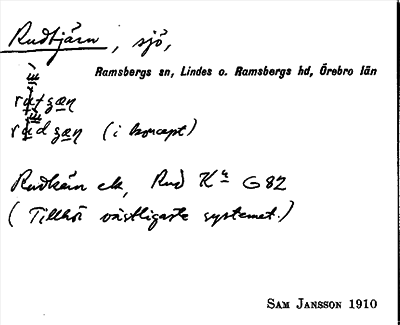 Rudtjärn, sjö,
Ramsbergs sn, Lindes o. Ramsbergs hd, Örebro län
(i koncept)
Rudkärn ek, Rud G 82
(Tillhör västligaste systemet.)
SAM JANSSON 1910